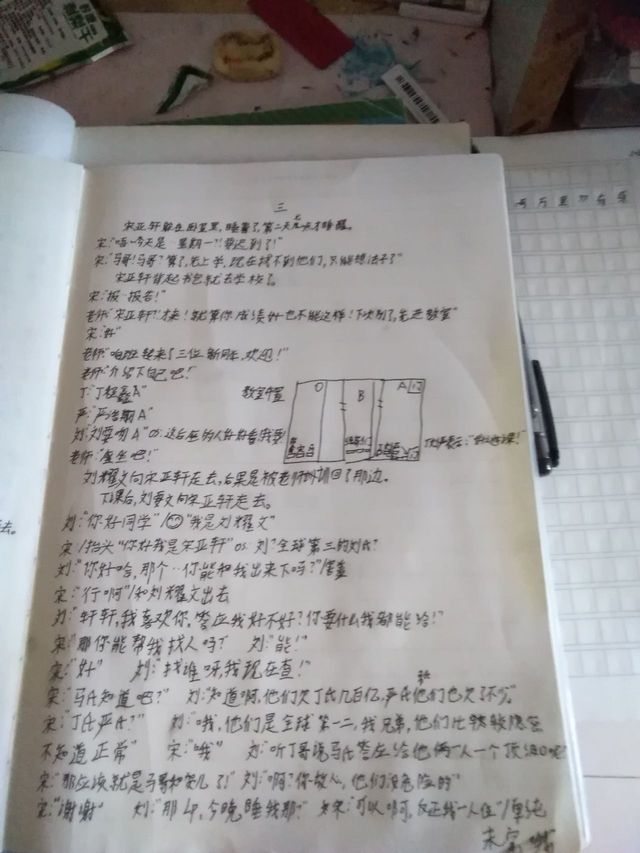 三
宋亚轩躲在田里,睡着了,第二天七点才睡醒。
宋:"唔~今天是…星期一?!要迟到了!"
宋:"马哥!马哥?算了,先上学,现在找不到他们,只能想法子了"
宋亚轩背起书包就去学校了。
宋:"报…报告!"
老师:"宋亚轩?!才来!就算你成绩好也不能这样!下次别了,先进教室"
宋:"好"
老师:"咱班转来了三位新同学,欢迎!"
老师:"介绍下自己吧!"
丁:"丁程鑫A"
教室位置
O
B
A
门
严:"严浩翔A"
刘:"刘耀文A" os:这后座的人好好看(我要)
老师:"坐吧!"
刘耀文向宋亚轩走去,后果是被老师叫回了那边。
下课后,刘耀文向宋亚轩走去。
刘:"你好同学"/"我是刘耀文"
宋:/抬头"你好我是宋亚轩" os:刘?全球第三的刘氏?
刘:"你好哈,那个…你能和我出来下吗?"
宋:"行啊"/和刘耀文出去
刘:"轩轩,我喜欢你,答应我好不好?你要什么我都能给!"
宋:"那你能帮我找人吗? 刘:"能!"
宋:"好" 刘:"找谁呀,我现在查!"
宋:"马氏知道吧?" 刘:"知道啊,他们欠丁氏几百亿,严氏他们也欠了不少。
宋:"丁氏严氏?" 刘:"哦,他们是全球第一二,我兄弟,他们比较
不知道正常" 宋:"哦" 刘:"听丁哥说马氏答应给他俩一人一个顶级O呢
宋:"那应该就是马哥和贺儿了!" 刘:"啊?你放心,他们没危险的"
宋:"谢谢" 刘:"那…今晚,睡我那?" 宋:"可以啊,反正我一人住"/单纯
未完